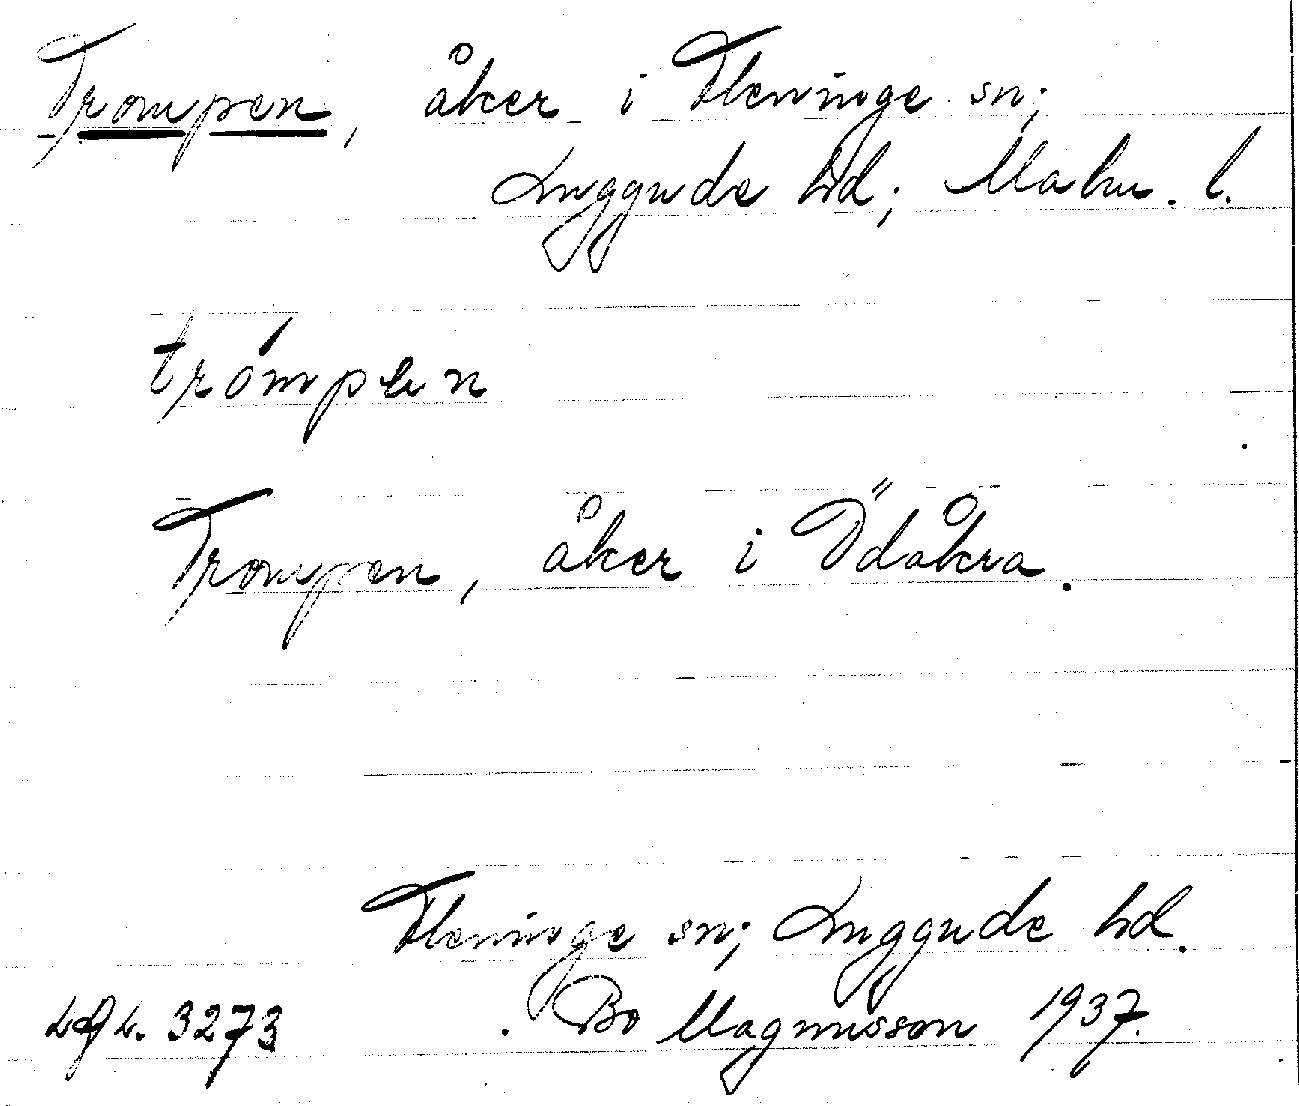 Trompen, åker i Fleninge sn;
Luggude hd; Malm. l.
trómpen
Trompen, åker i Ödåkra.
Fleninge sn; Luggude hd.
Bo Magnusson 1937.
3273